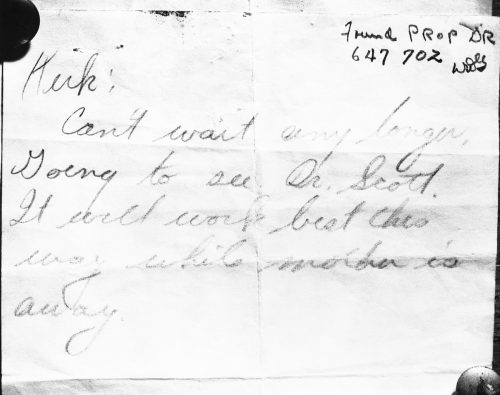 Found PROP DR
647 702
Kirk:
Can't wait any longer,
Going to see Dr. Scott.
It will work best this
way while mother is
away.